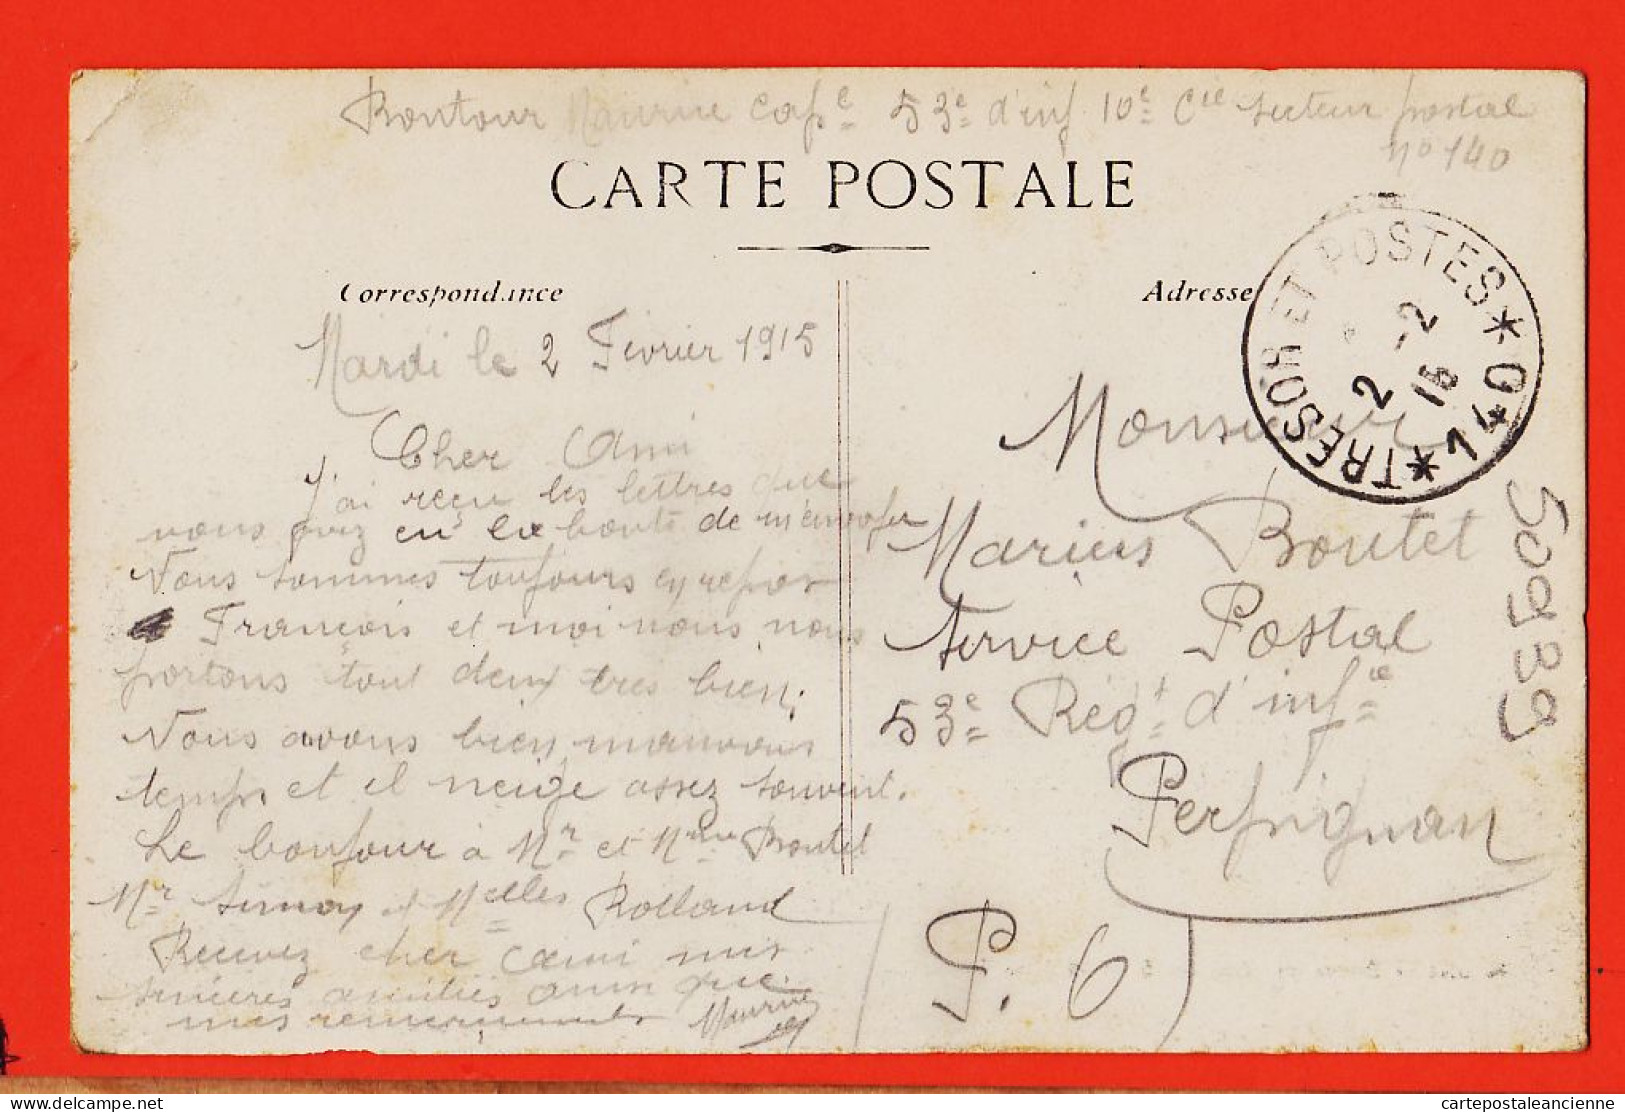 Bontour Maurice cap^e 53^e d'inf 10^e C^ie secteur postal
n° 140
CARTE POSTALE
Correspondance
Adresse
TRESOR ET POSTES * 140 *
2 -2
15
Mardi le 2 Fevrier 1915
Cher Ami
J'ai reçu les lettres que
vous avez eu la bonté de m'envoyer
Nous sommes toujours en repos
François et moi nous nous
portons tout deux tres bien.
Nous avons bien mauvais
temps et il neige assez souvent.
Le bonjour à M^r et M^me Boutet
M^r et M^elles Rolland
Recevez cher ami mes
sincères amitiés ainsi que
mes remerciements Maurice
Monsieur
Marius Boutet
Service Postal
53^e Rég^t d'inf^ie
Perpignan
P. 6
509939
https://www.delcampe.net
cartepostaleancienne